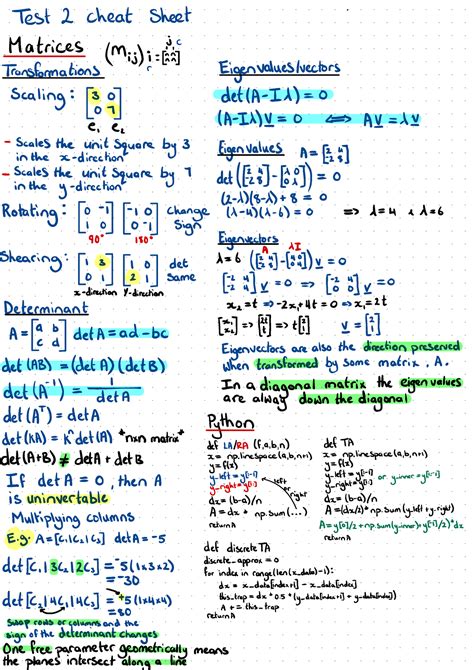 Test 2 cheat Sheet
Matrices (mij)
Transformations
Scaling: [3 0
0 7]
e₁ e₂
- Scales the unit square by 3
in the x-direction
- Scales the unit square by 7
in the y-direction
Rotating: [0 -1 [-1 0 change
1 0] 0 -1] sign
90° 180°
Shearing: [1 3 [1 0 det
0 1] 2 1] same
x-direction y-direction
Determinant
A = [a b
c d] det A = ad - bc
det(AB) = (det A)(det B)
det(A⁻¹) = 1/det A
det(Aᵀ) = det A
det(kA) = kⁿdet(A) *nxn matrix*
det(A+B) ≠ det A + det B
If det A = 0, then A
is uninvertable
Multiplying columns
E.g. A = [C₁ | C₂ | C₃] det A = -5
det[C₁ | 3C₂ | 2C₃] = -5(1x3x2)
= -30
det[C₂ | 4C₁ | 4C₃] = +5(1x4x4)
= 80
Swap rows or columns and the
sign of the determinant changes
One free parameter geometrically means
the planes intersect along a line
Eigenvalues/vectors
det(A-Iλ) = 0
(A-Iλ)v = 0 ⟺ Av = λv
Eigenvalues A = [2 4
-2 8]
det([2 4 - [λ 0
-2 8] 0 λ]) = 0
(2-λ)(8-λ) + 8 = 0
(λ-4)(λ-6) = 0 ⇒ λ=4 & λ=6
Eigenvectors
A λI
λ=6
v = 0
[-2 4
v = 0 ⇒
v = 0
x₂=t ⇒ -2x₁+4t = 0 ⇒ x₁=2t
[x₁ ⇒ [2t ⇒ t[2 v = [2
x₂] t] 1] 1]
Eigenvectors are also the direction preserved
when transformed by some matrix, A.
In a diagonal matrix the eigen values
are alway down the diagonal
Python
def LA/RA (f,a,b,n)
x = np.linspace(a,b,n+1)
y = f(x)
y-left = y[:-1] left
y-right = y[1:] or right
dx = (b-a)/n
A = dx * np.sum(...)
return A
def TA
x = np.linspace(a,b,n+1)
y = f(x)
y-left = y[:-1] or y-inner = y[1:-1]
y-right = y[1:]
dx = (b-a)/n
A = (dx/2) * np.sum(y.left + y.right)
A = y[0]/2 + np.sum(y.inner) + y[-1]/2) * dx
return A
def discrete TA
discrete_approx = 0
for index in range(len(x_data)-1):
dx = x_data[index+1] - x_data[index]
this_trap = dx * 0.5 * (y_data[index+1] + y_data[index])
A += this_trap
return A